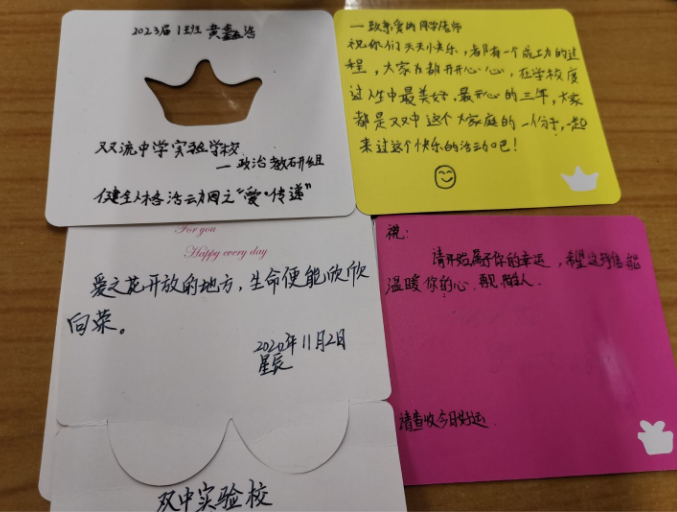 2023届1班 黄鑫浩
双流中学实验学校
—政治教研组
健全人格活动周之“爱·传递”
—致亲爱的同学老师
祝你们天天小快乐，都有一个成功的过
程，大家为都开开心心，在学校度
过人生中最美好、最开心的三年，大家
都是双中这个大家庭的一份子，一起
来过这个快乐的活动吧！
For you
Happy every day
爱之花开放的地方，生命便能欣欣
向荣。
2020年11月2日
星辰
双中实验校
祝：
请开始属于你的幸运，希望这封信能
温暖你的心.
陌生人.
请查收今日好运